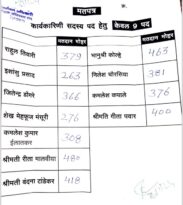 मतपत्र
कार्यकारिणी सदस्य पद हेतु केवल 9 पद
मतदान मोहर
मतदान मोहर
राहुल तिवारी 379
भानुश्री कोल्हे 463
इशांशु प्रसाद 263
निलेश चौरसिया 381
जितेन्द्र डोंगरे 366
कमलेश कपाले 376
शेख मेहफूज मंसूरी 276
श्रीमति रीता पवार 400
कमलेश कुमार
308
श्रीमती रीता मालवीया 480
श्रीमती वंदना टांडेकर 418